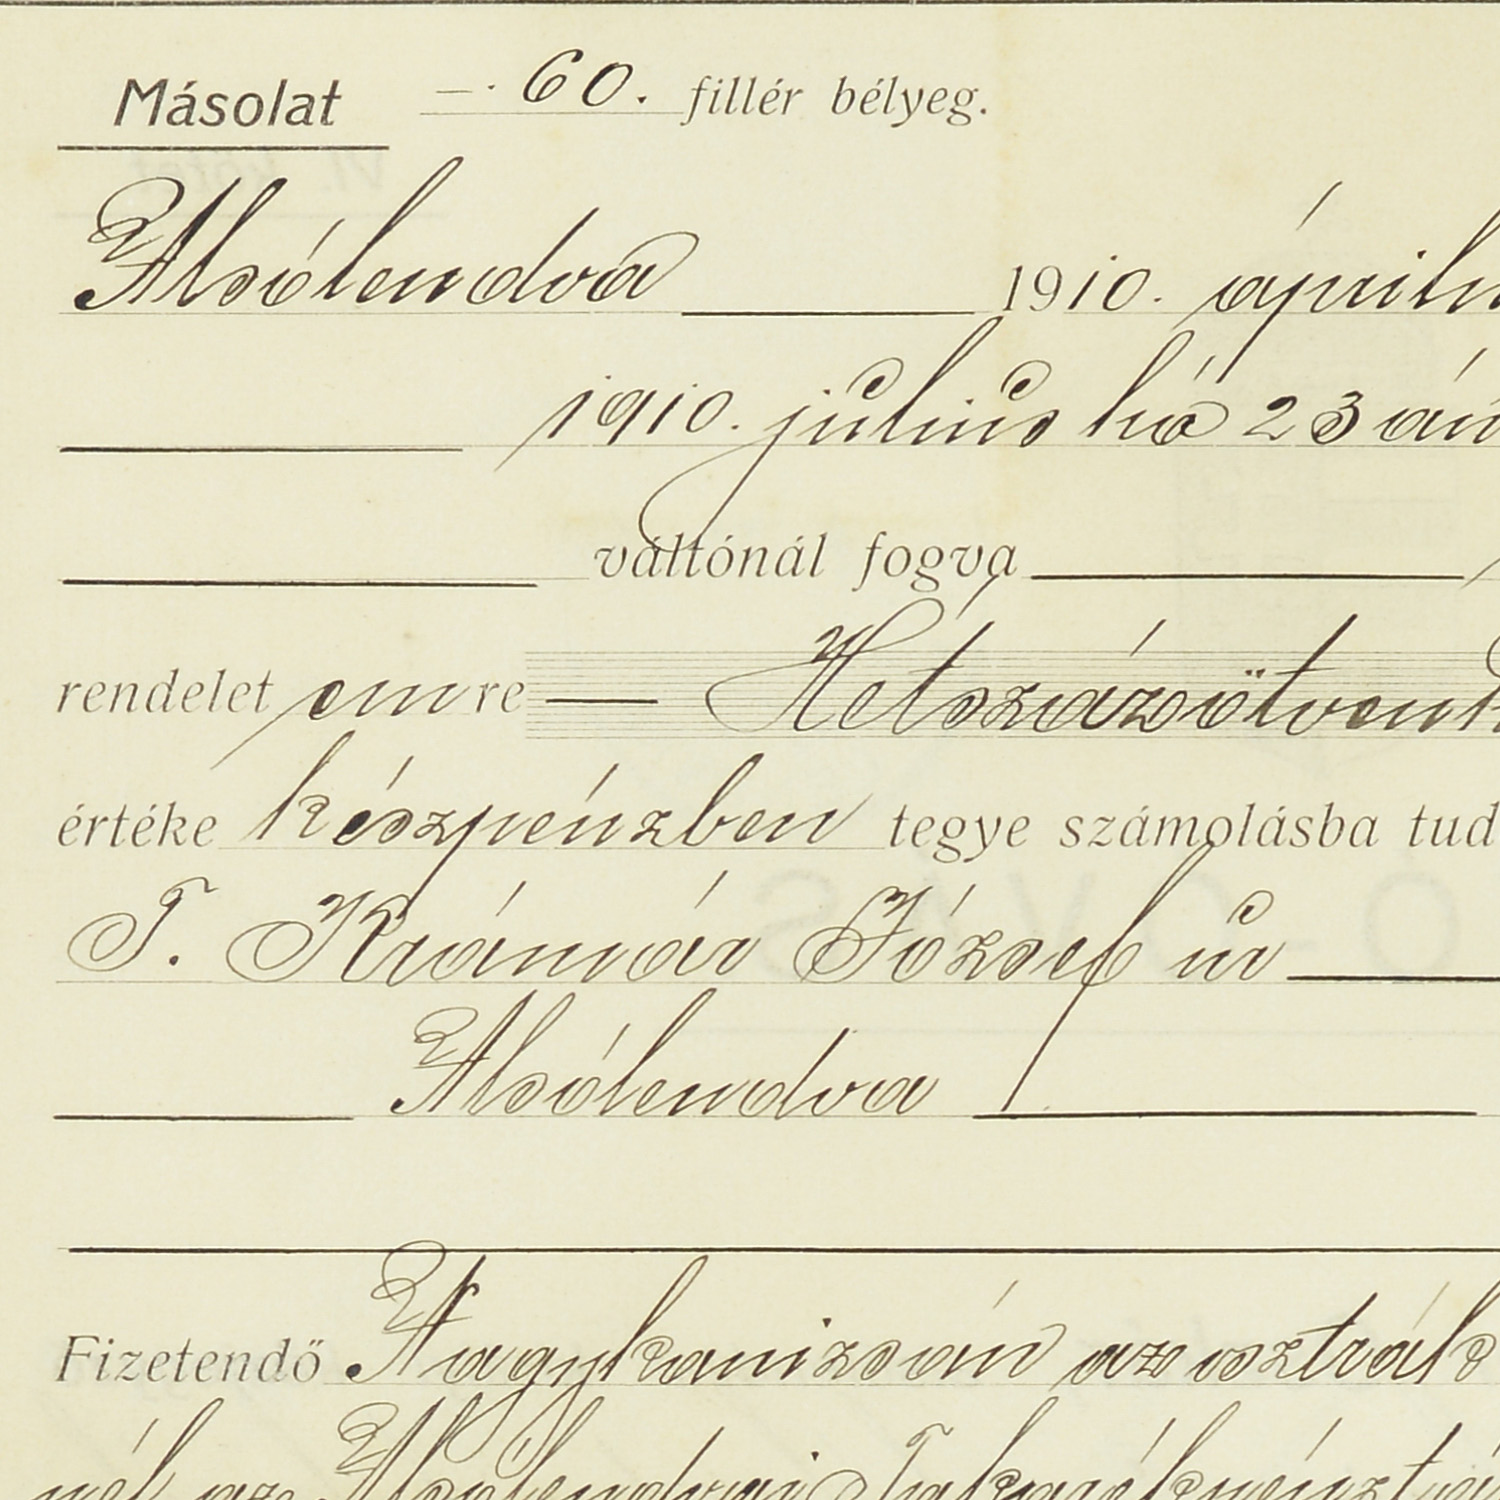 Másolat —. 60. fillér bélyeg.
Alsólendva 1910. április
1910. július hó 23 án
váltónál fogva
rendelet emre — Hétszázötven
értéke készpénzben tegye számolásba tud
T. Krámár József úr
Alsólendva
Fizetendő Nagykanizsán az osztrák
nél az Alsólendvai Takarékpénztá